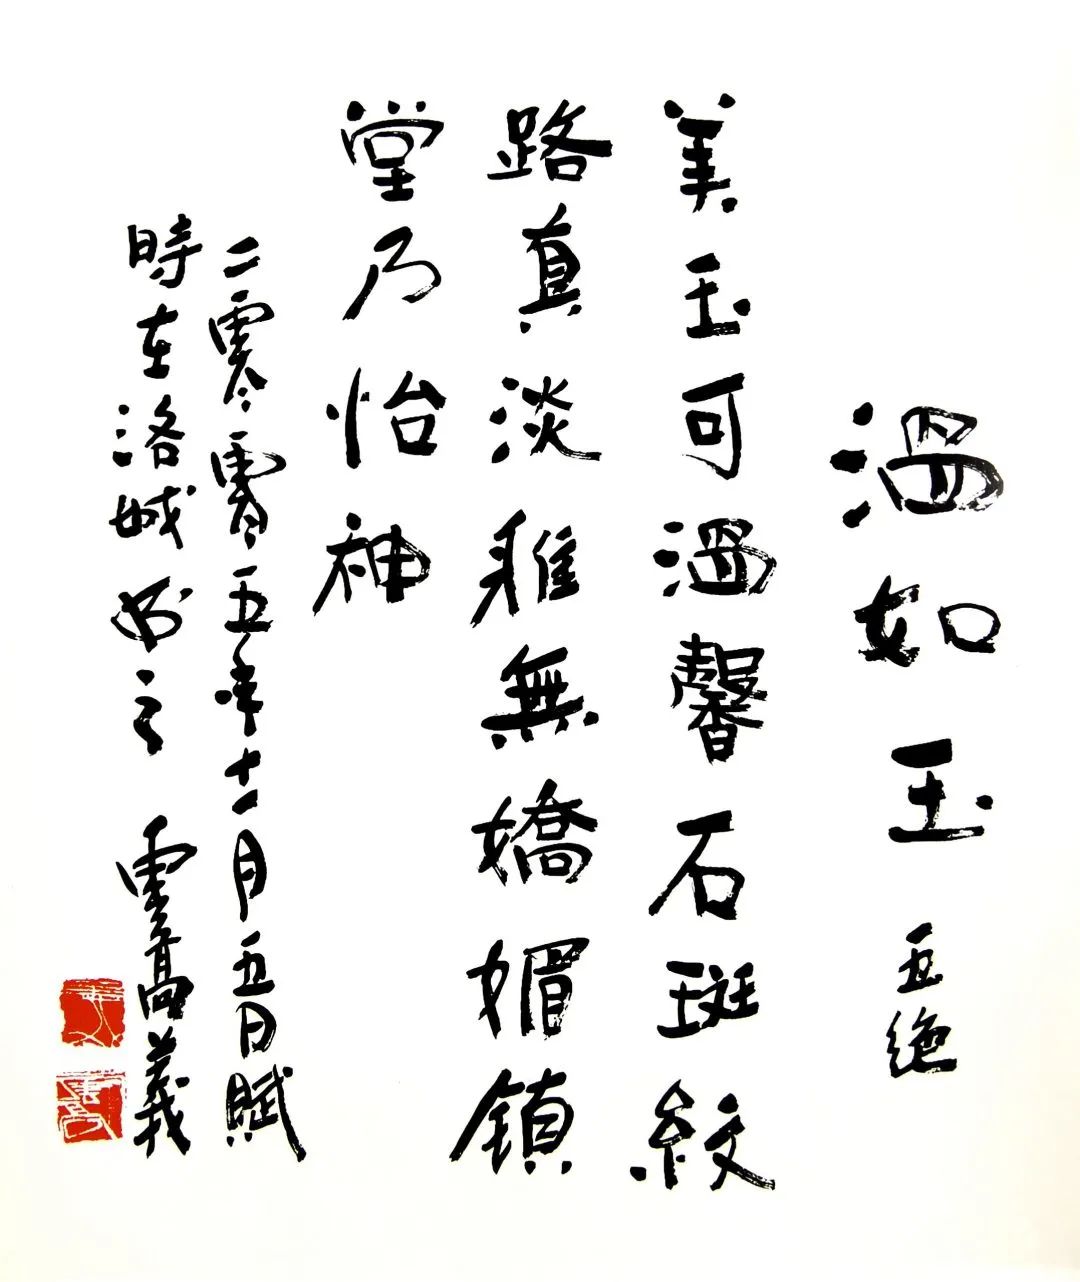 溫如玉 五絕
美玉可溫馨石斑紋
路真淡雅無嬌媚鎮
堂乃怡神
二零零五年十一月五日賦
時在洛城書之 雲高義